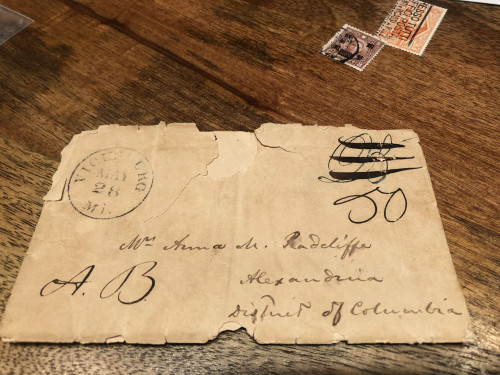 VICKSBURG
MAY
28
Mi.
25
50
Mrs Anna M. Radcliffe
A. B.
Alexandria
District of Columbia